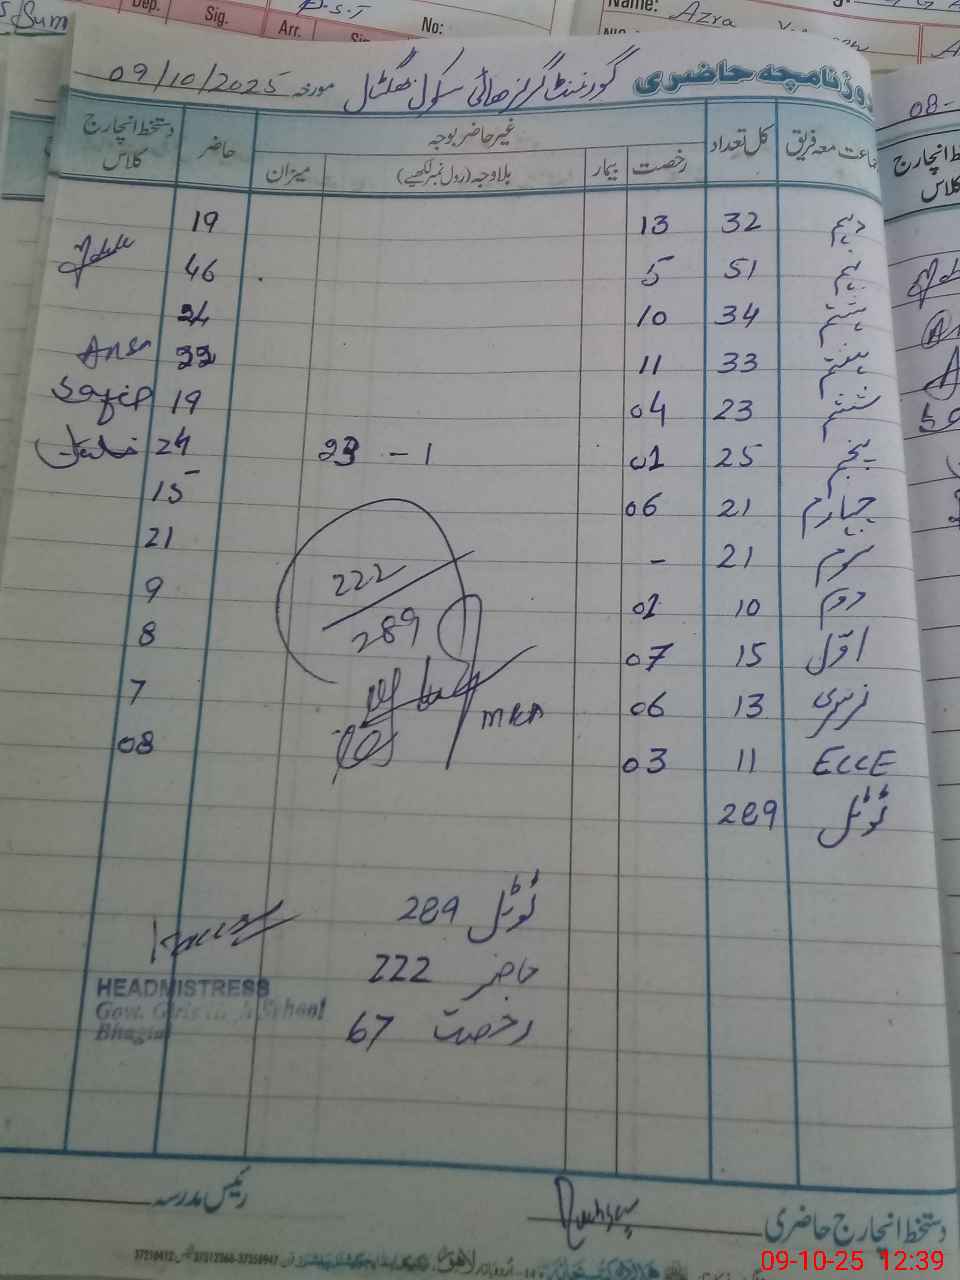 Sum
Dep.
Sig.
Arr.
No:
Name: Azra
روزنامچہ حاضری گورنمنٹ گرلز ہائی سکول بھگٹال مورخہ 09/10/2025
جماعت معہ فریق کل تعداد غیر حاضر بوجہ حاضر دستخط انچارج کلاس
رخصت بیمار بلاوجہ (رول نمبر لکھیے) میزان
دہم 32 13 19
نہم 51 5 46
ہشتم 34 10 24
ہفتم 33 11 22
ششم 23 04 19
پنجم 25 01 23 - 1 24
چہارم 21 06 15
سوم 21 - 21
دوم 10 01 9
اوّل 15 07 8
نرسری 13 06 7
ECCE 11 03 08
ٹوٹل 289
222
289
MEA
ٹوٹل 289
حاضر 222
رخصت 67
HEADMISTRESS
Govt. Girls High School
دستخط انچارج حاضری
رئیس مدرسہ
08-
09-10-25 12:39